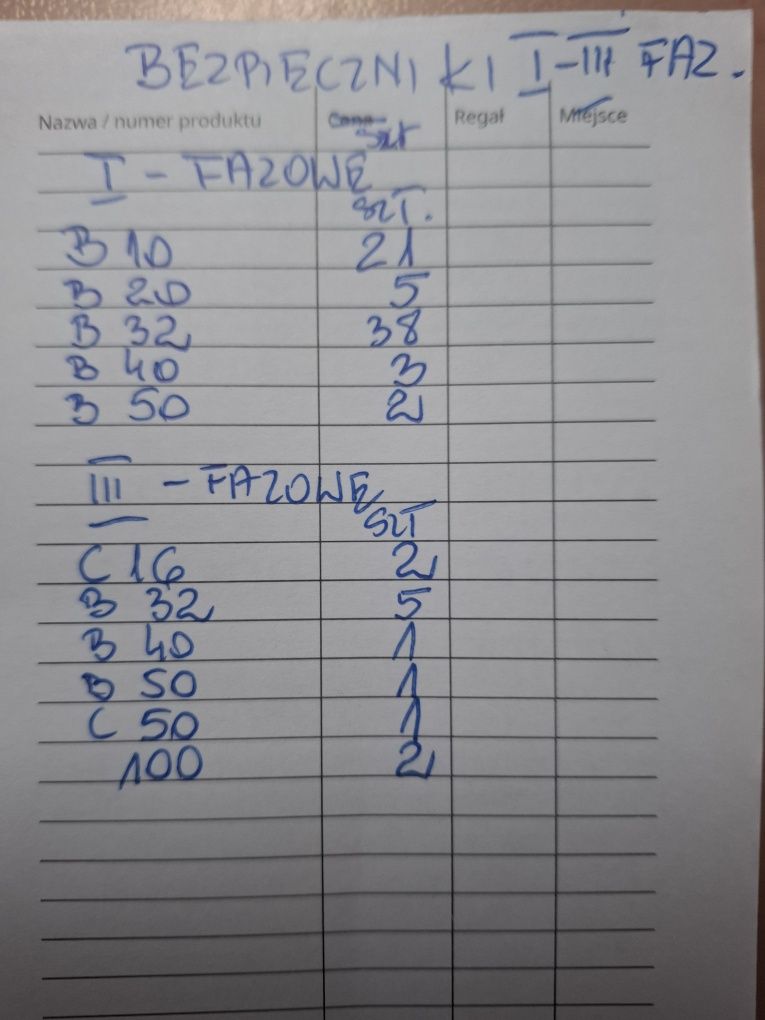 BEZPIECZNIKI I-III FAZ.
Nazwa / numer produktu Cena szt Regał Miejsce
I - FAZOWE
szt.
B 10 21
B 20 5
B 32 38
B 40 3
B 50 2
III - FAZOWE
szt
C 16 2
B 32 5
B 40 1
B 50 1
C 50 1
100 2